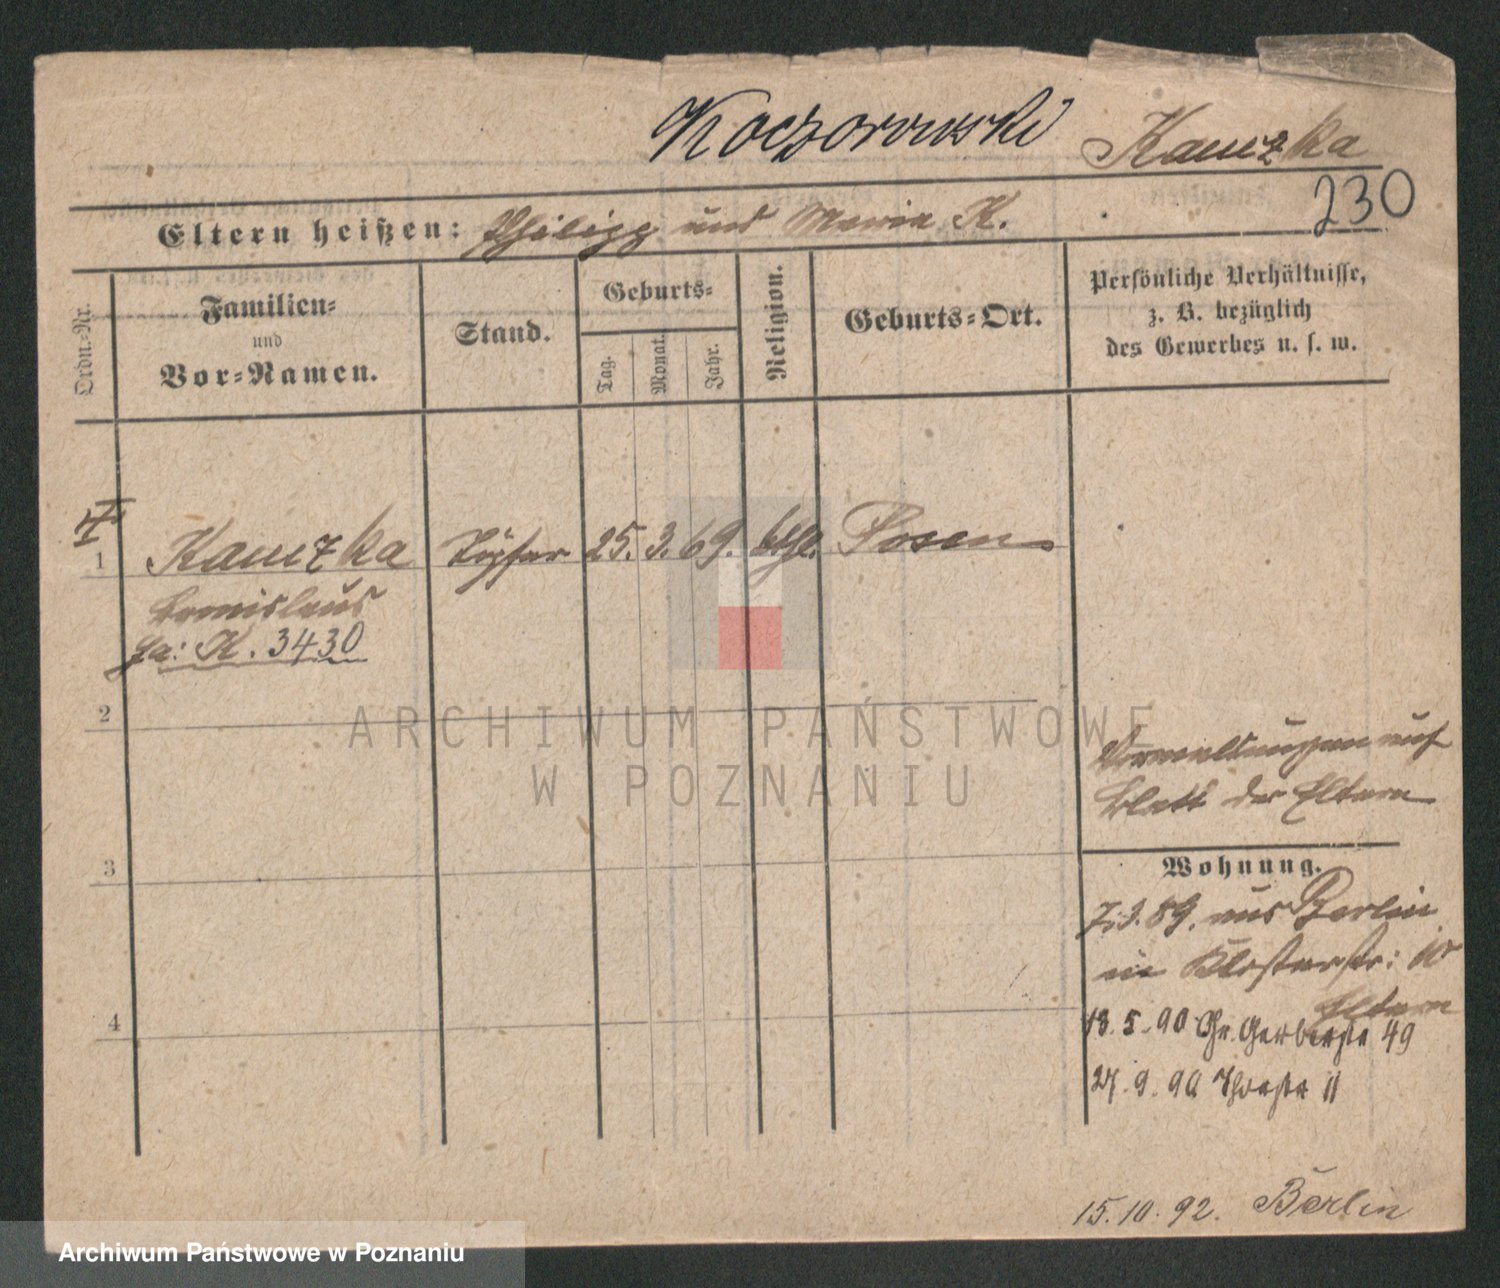 Koczorowski Kaniezka
230
Eltern heißen: Philipp und Maria K.
Ordn.-Nr.
Familien-
und
Vor-Namen.
Stand.
Geburts-
Tag.
Monat.
Jahr.
Religion.
Geburts-Ort.
Persönliche Verhältnisse,
z. B. bezüglich
des Gewerbes u. s. w.
1 Kaniezka Töpfer 25. 3. 69. kath. Posen
Bronislaus
K. 3430
2
auf
Blatt der Eltern
3
Wohnung.
7.3.89. aus Berlin
in Klosterstr: 10
Eltern
4
18.5.90 Gr. Gerberstr 49
9.90 Thorstr 11
15.10.92. Berlin
ARCHIWUM PAŃSTWOWE
W POZNANIU
Archiwum Państwowe w Poznaniu